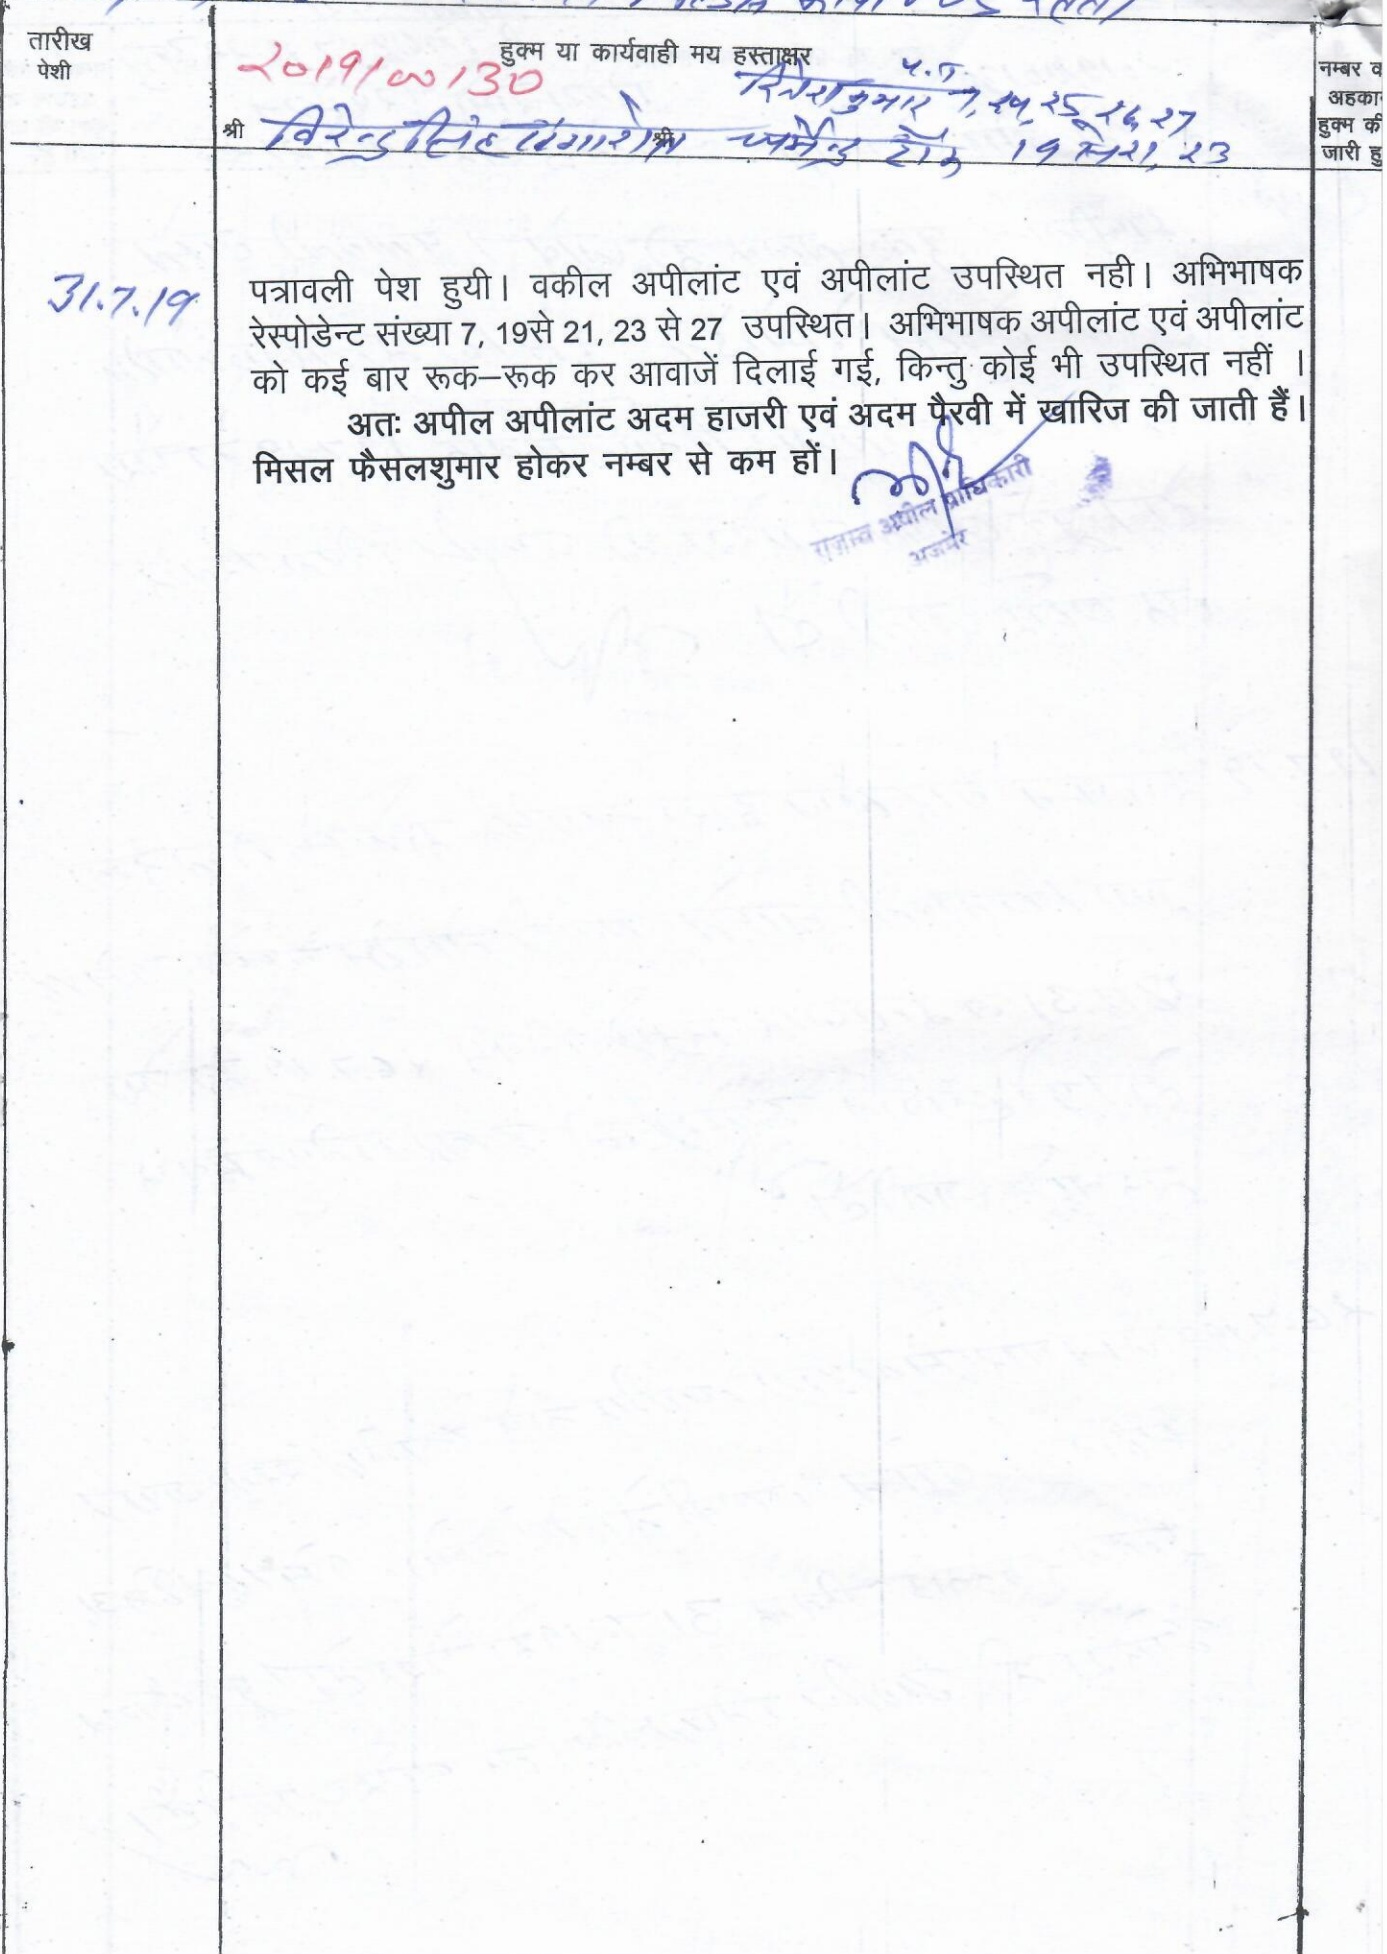 तारीख
पेशी
हुक्म या कार्यवाही मय हस्ताक्षर
2019/00130
7, 24, 25, 26, 27
श्री विरेन्द्र सिंह श्री धर्मेन्द्र 19 23
नम्बर व
अहका
हुक्म की
जारी हु
31.7.19
पत्रावली पेश हुयी। वकील अपीलांट एवं अपीलांट उपस्थित नही। अभिभाषक
रेस्पोडेन्ट संख्या 7, 19से 21, 23 से 27 उपस्थित। अभिभाषक अपीलांट एवं अपीलांट
को कई बार रूक–रूक कर आवाजें दिलाई गई, किन्तु कोई भी उपस्थित नहीं ।
अतः अपील अपीलांट अदम हाजरी एवं अदम पैरवी में खारिज की जाती हैं।
मिसल फैसलशुमार होकर नम्बर से कम हों।
राजस्व अपील प्राधिकारी
अजमेर